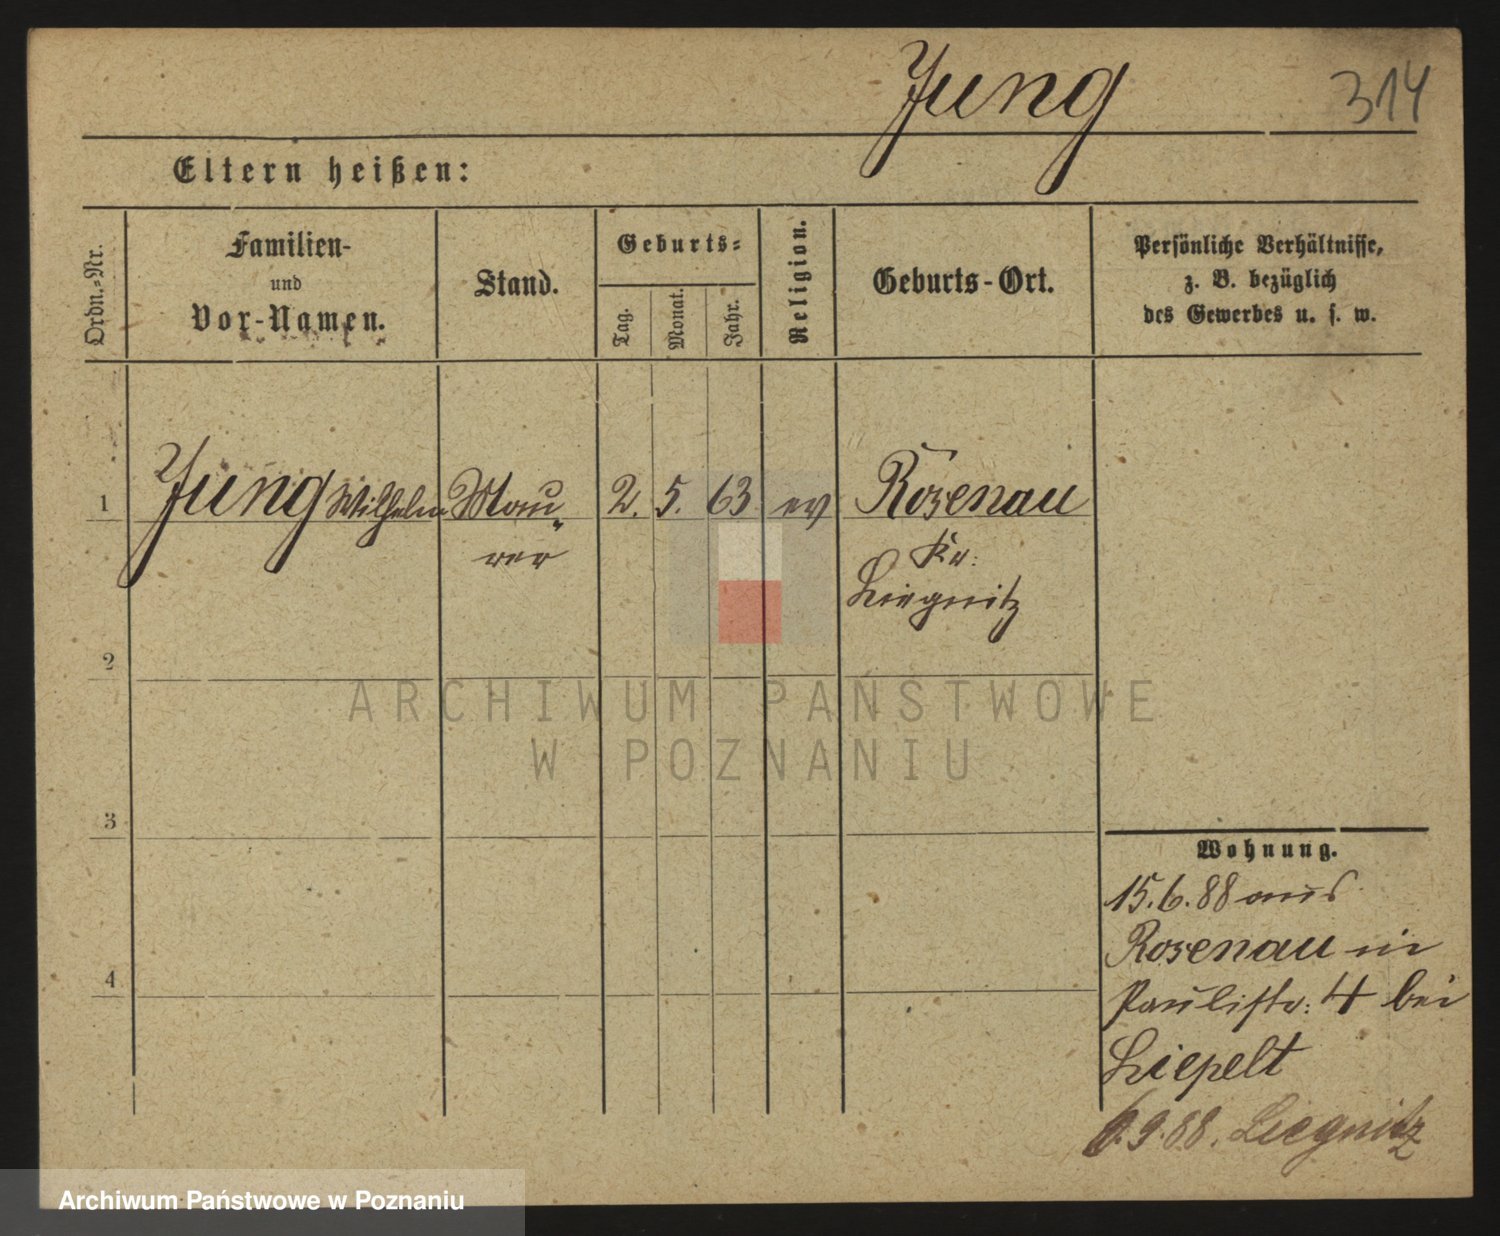 Jung 314
Eltern heißen:
Ordn.-Nr.
Familien-
und
Vor-Namen.
Stand.
Geburts-
Tag.
Monat.
Jahr.
Religion.
Geburts-Ort.
Persönliche Verhältnisse,
z. B. bezüglich
des Gewerbes u. s. w.
1 Jung Wilhelm Mau- 2. 5. 63 ev Rosenau
rer Kr:
Liegnitz
2
ARCHIWUM PAŃSTWOWE
W POZNANIU
3
4
Wohnung.
15.6.88 aus
Rosenau in
Paulistr: 4 bei
Liepelt
6.9.88. Liegnitz
Archiwum Państwowe w Poznaniu